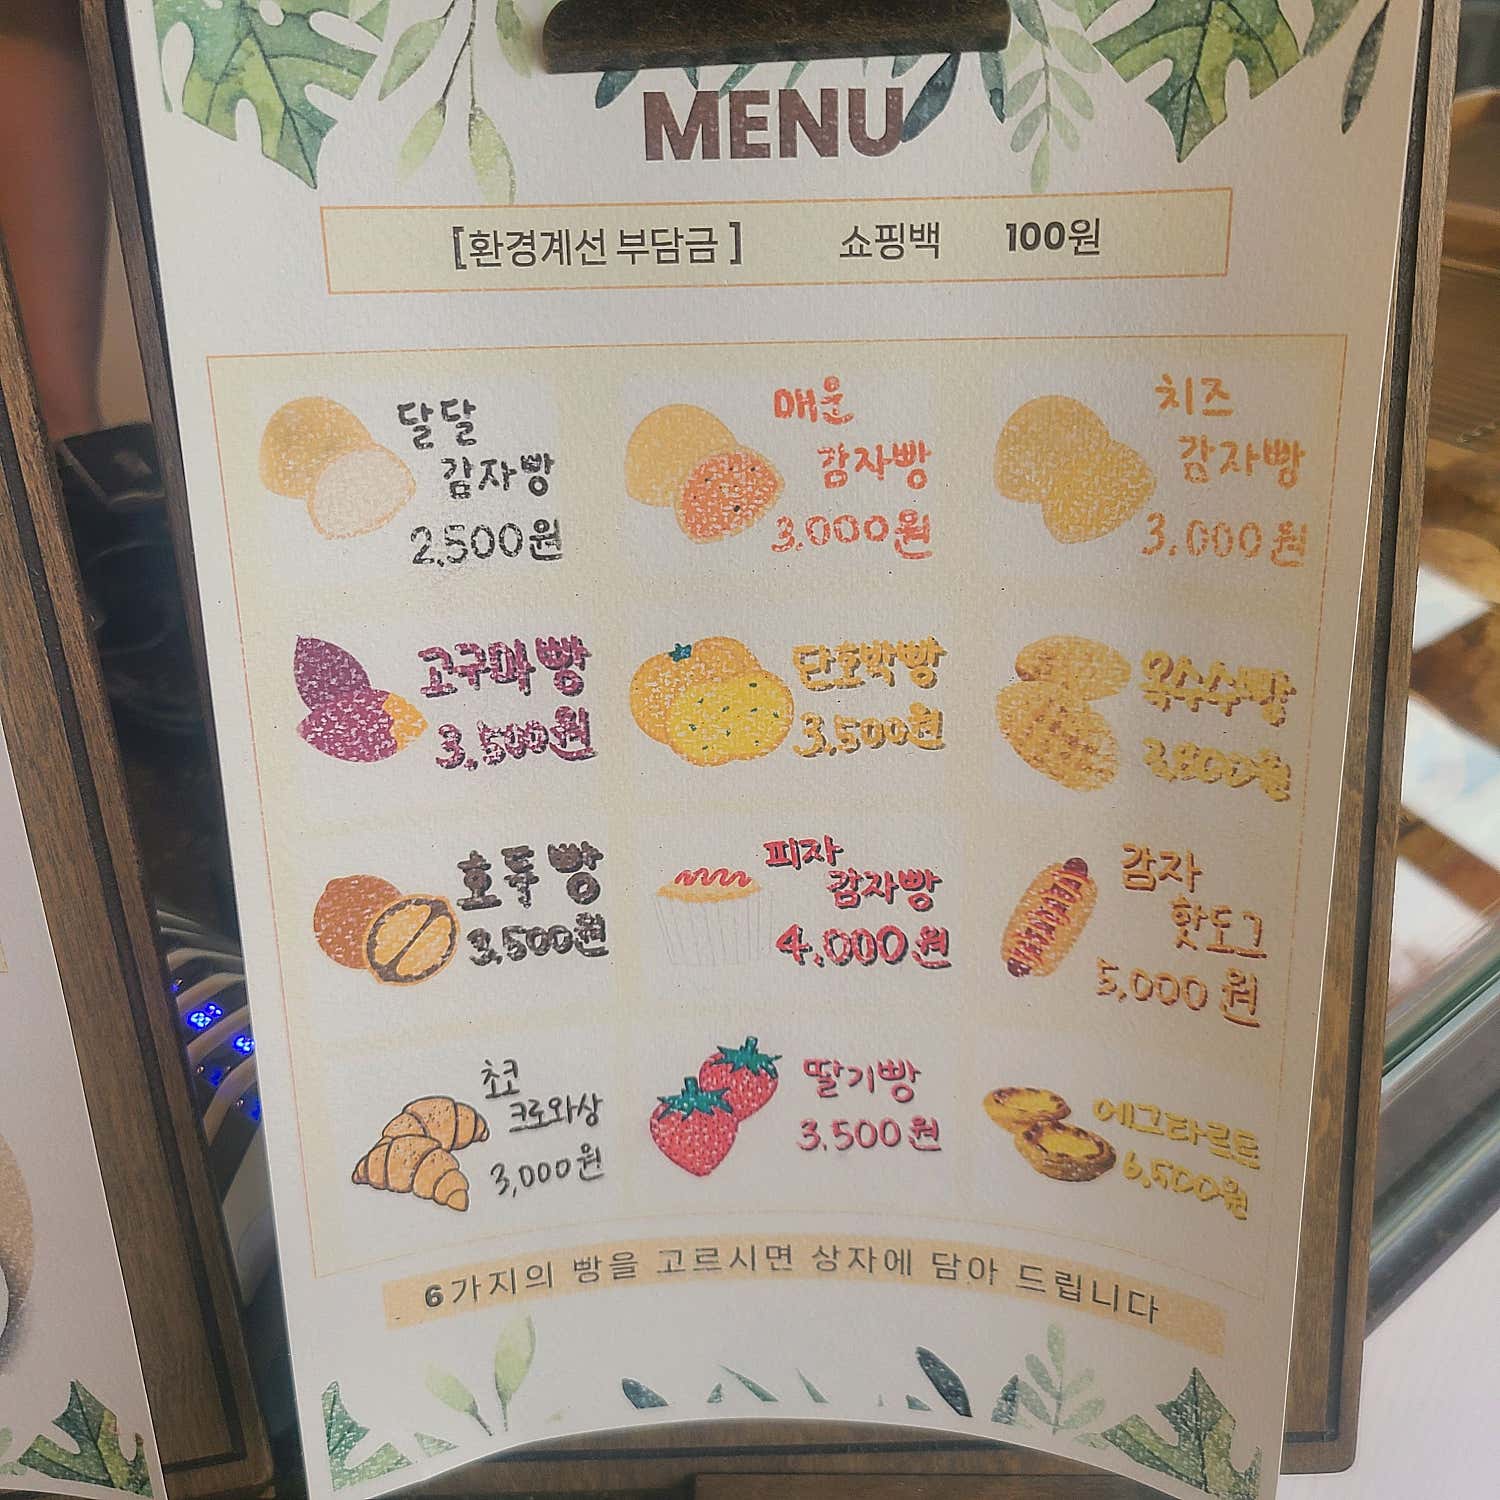 MENU
[환경계선 부담금] 쇼핑백 100원
달달
감자빵
2,500원
매운
감자빵
3,000원
치즈
감자빵
3,000원
고구마빵
3,500원
단호박빵
3,500원
옥수수빵
호두빵
3,500원
피자
감자빵
4,000원
감자
핫도그
5,000원
초코
크로와상
3,000원
딸기빵
3,500원
에그타르트
6,500원
6가지의 빵을 고르시면 상자에 담아 드립니다